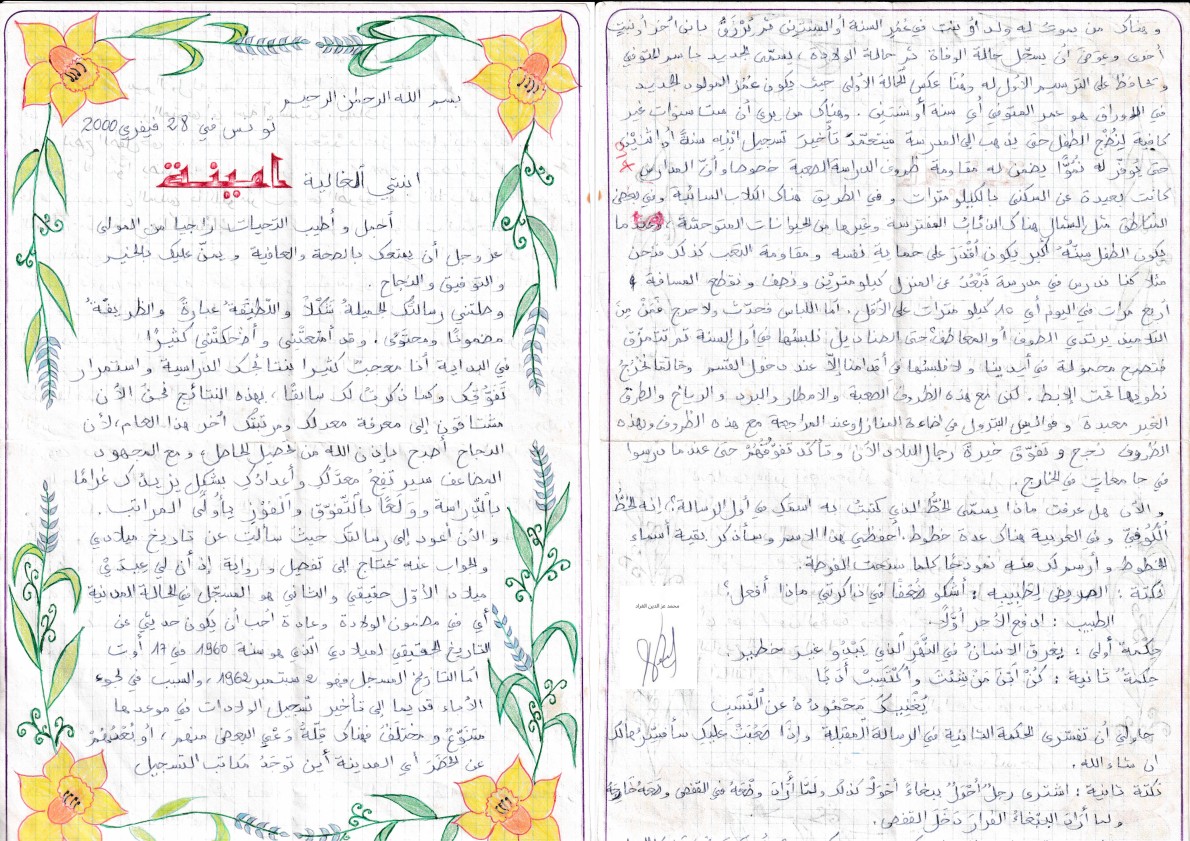 بسم الله الرحمان الرحيم
تونس في 28 فيفري 2000
ابنتي الغالية أمينة
أجمل و أطيب التحيات راجيا من المولى
عز وجل أن يمتعك بالصحة والعافية و يمنّ عليك بالخير
والتوفيق والنجاح .
وصلتني رسالتُكِ الجميلةُ شكلاً واللّطيفة عبارةً والظريفةُ
مضمونًا ومحتوًى . وقد أمتعتْني وأضحكتْني كثيرًا
في البداية أنا معجبٌ كثيرا بنتائجك الدراسية و استمرار
تفوّقك وكما ذكرتُ لك سابقًا ، بهذه النتائج نحن الآن
مشتاقون إلى معرفة معدلك ومرتبتك آخر هذا العام ، لأن
النجاح أصبح بإذن الله من تحصيل الحاصل ، ومع المجهود
المضاعف سيرتفع معدّلك وأعدادك بشكل يزيدك غرامًا
بالدّراسة وولعًا بالتّفوّق والفوز بأولى المراتب .
و الآن أعود إلى رسالتك حيث سألت عن تاريخ ميلادي
والجواب عنه يحتاج إلى تفصيل و رواية إذ أن لي عيديْ
ميلاد الأوّل حقيقي والثاني هو المسجّل في الحالة المدنية
أي في مضمون الولادة وعادة أحب أن يكون حديثي عن
التاريخ الحقيقي لميلادي الذي هو سنة 1960 في 17 أوت
أما التاريخ المسجل فهو 2 سبتمبر 1962 ، والسبب في لجوء
الأباء قديما إلى تأخير تسجيل الولادات في موعدها
متنوّع و مختلف فهناك قلّة وعي البعض منهم ، أو بُعدُهُمْ
عن الحضَر أي المدينة أين توجد مكاتب التسجيل
و هناك من يموت له ولد أو بنت في عمر السنة أو السنتين ثم يُرزقُ بابن آخر أو بنت
أخرى وعوض أن يسجّل حالة الوفاة ثم حالة الولادة ، يسمّي الجديد باسم المتوفي
و يحافظ على الترسيم الأول له وهنا عكس الحالة الأولى حيث يكون عمر المولود الجديد
في الأوراق هو عمر المتوفي أي سنة أو سنتين . وهناك من يرى أن ست سنوات غير
كافية لنُضْجِ الطفل حتى يذهب إلى المدرسة فيتعمّد تأخيرَ تسجيل ابنه سنةً أو اثنتيْن
حتى يوفّر له نموّا يضمن له مقاومة ظروف الدراسة الصعبة خصوصا وأنّ المدارس
كانت بعيدة عن السكنى بالكيلومترات و في الطريق هناك الكلاب السائبة وفي بعض
المناطق مثل الشمال هناك الذئاب المفترسة وغيرها من الحيوانات المتوحشة ، وعندما
يكون الطفل سِنُّهُ أكبر يكون أقدَرَ على حماية نفسه و مقاومة التعب كذلك فنحن
مثلا كنا ندرس في مدرسة تبعُد عن المنزل كيلومتريْن ونصف و نقطع المسافة
أربع مرات في اليوم أي 10 كيلومترات على الأقل . أمّا اللباس فحدّث ولا حرج فمِن
التلاميذ يرتدي الصوف أو المعاطف حتى الصنادل نلبسُها في أول السنة ثم تتمزّق
فتصبح محمولة في أيدينا و لا نلبسُها في أقدامنا إلاّ عند دخول القسم وحالما نخرج
نطويها تحت الإبط . لكن مع هذه الظروف الصعبة والأمطار والبرد والرياح والطرق
الغير معبدة و فوانيس البترول في إضاءة المنازل وعند المراجعة مع هذه الظروف وبهذه
الظروف نجح و تفوّق خيرة رجال البلاد الآن و تأكّد تفوّقُهُمْ حتى عندما درسوا
في جامعات في الخارج .
و الآن هل عرفت ماذا يسمّى الخطُّ الذي كتبتُ به اسمك في أول الرسالة ؟ إنه الخطّ
الكُوفيّ و في العربية هناك عدة خطوط ، احفظي هذا الاسم وسأذكر بقية أسماء
الخطوط و أرسم لك منه نموذجا كلما سنحت الفرصة .
نكتة : المريض لطبيبه : أشكو ضعفًا في ذاكرتي ماذا أفعل ؟
الطبيب : ادفع الأجر أوّلاً .
محمد عز الدين القراد
حكمة أولى : يغرق الإنسان في النّهْر الّذي يَبْدُوا غير خطير
حكمةٌ ثانية : كنْ ابْنَ مَنْ شئت واكتسب أدبًا
يُغْنِيكَ محمُودُهُ عن النَّسب
حاولي أن تفسّري الحكمة الثانية في الرسالة المقبلة و إذا صعبت عليك سأفسّرها لك
إن شاء الله .
نكتة ثانية : اشترى رجلٌ أحْوَلُ ببغاءً أحْوَلَ كذلك ولمّا أراد وضعهُ في القفص وضعهُ خارجهُ
ولما أراد الببغاءُ الفرارَ دخل القفص .